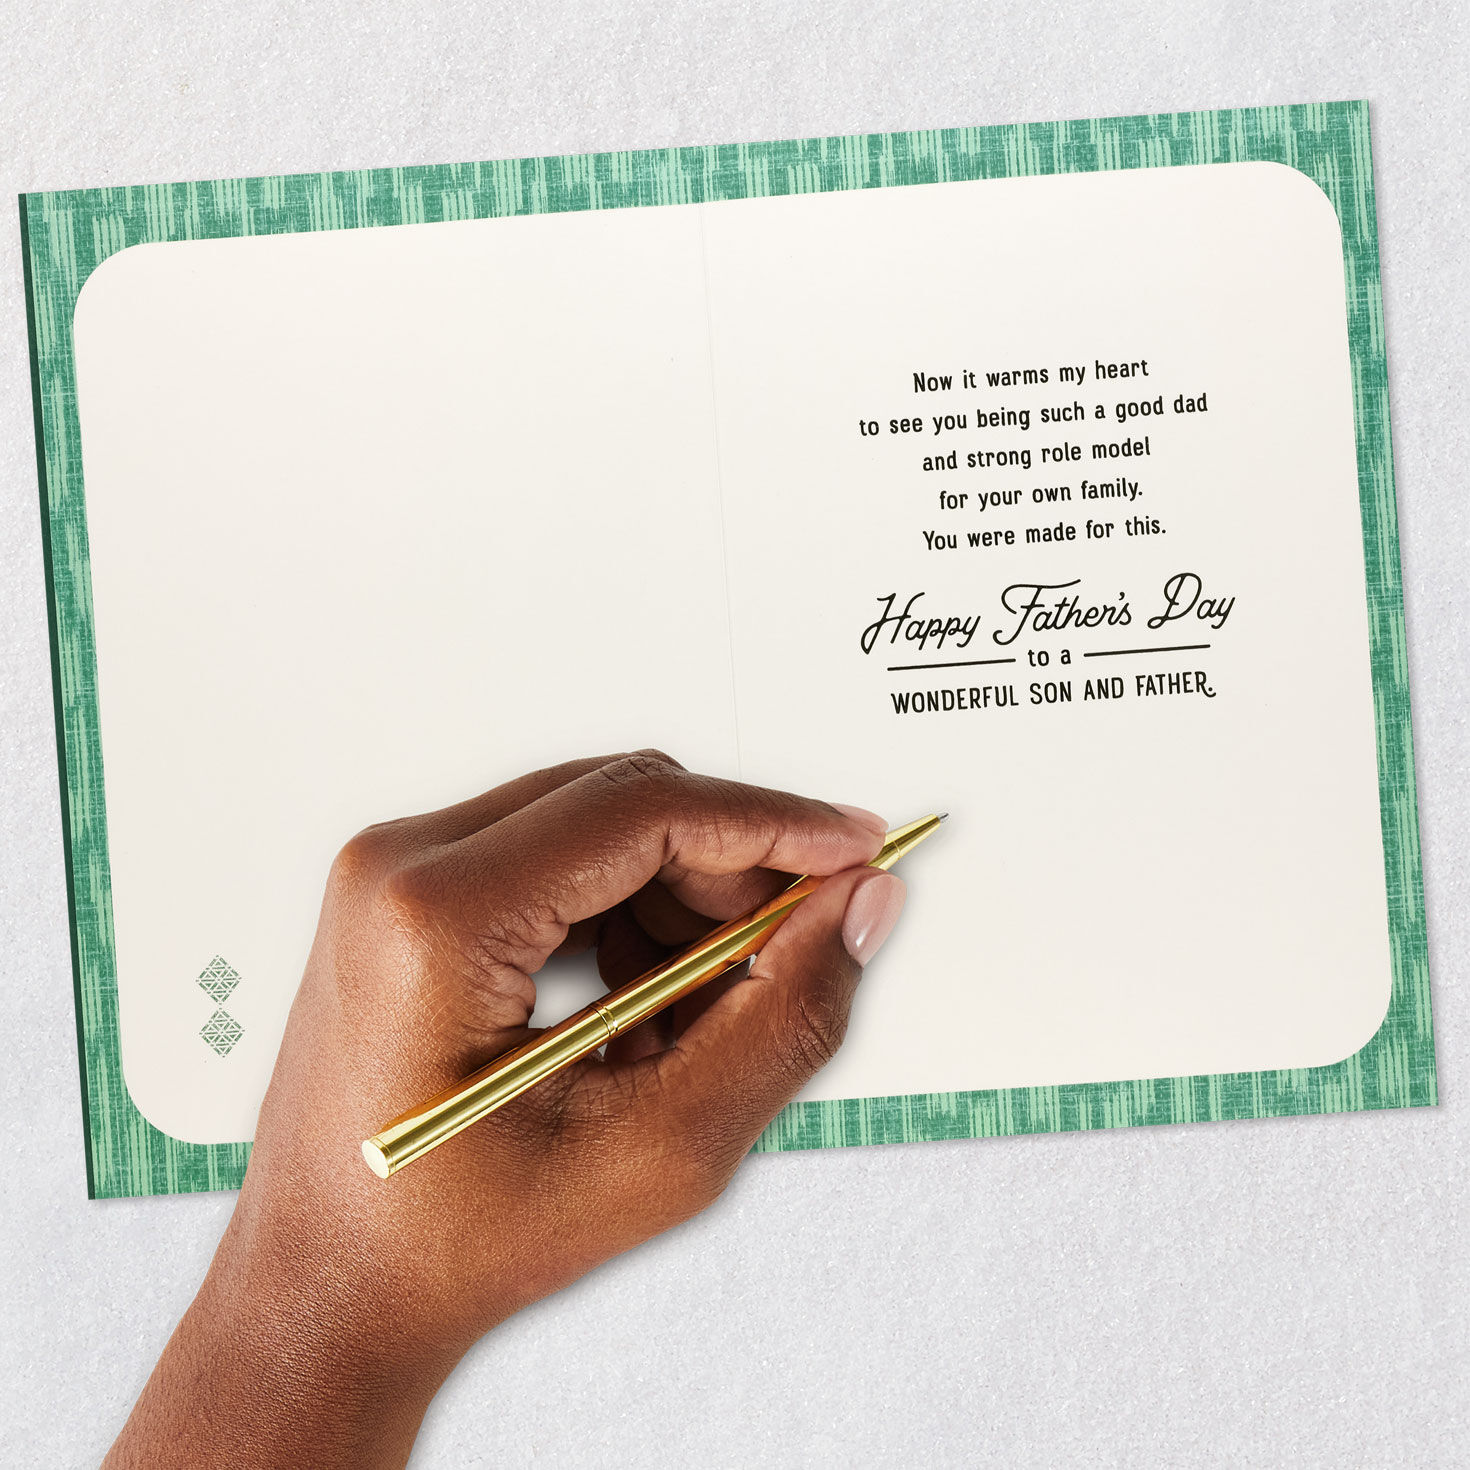 Now it warms my heart
to see you being such a good dad
and strong role model
for your own family.
You were made for this.
Happy Father's Day
to a
WONDERFUL SON AND FATHER.